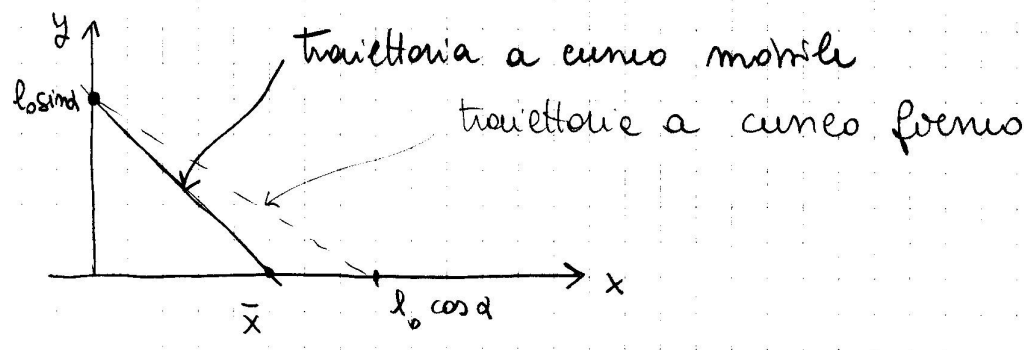 y
traiettoria a cuneo mobile
l₀ sinα
traiettoria a cuneo fermo
x
x̄
l₀ cos α